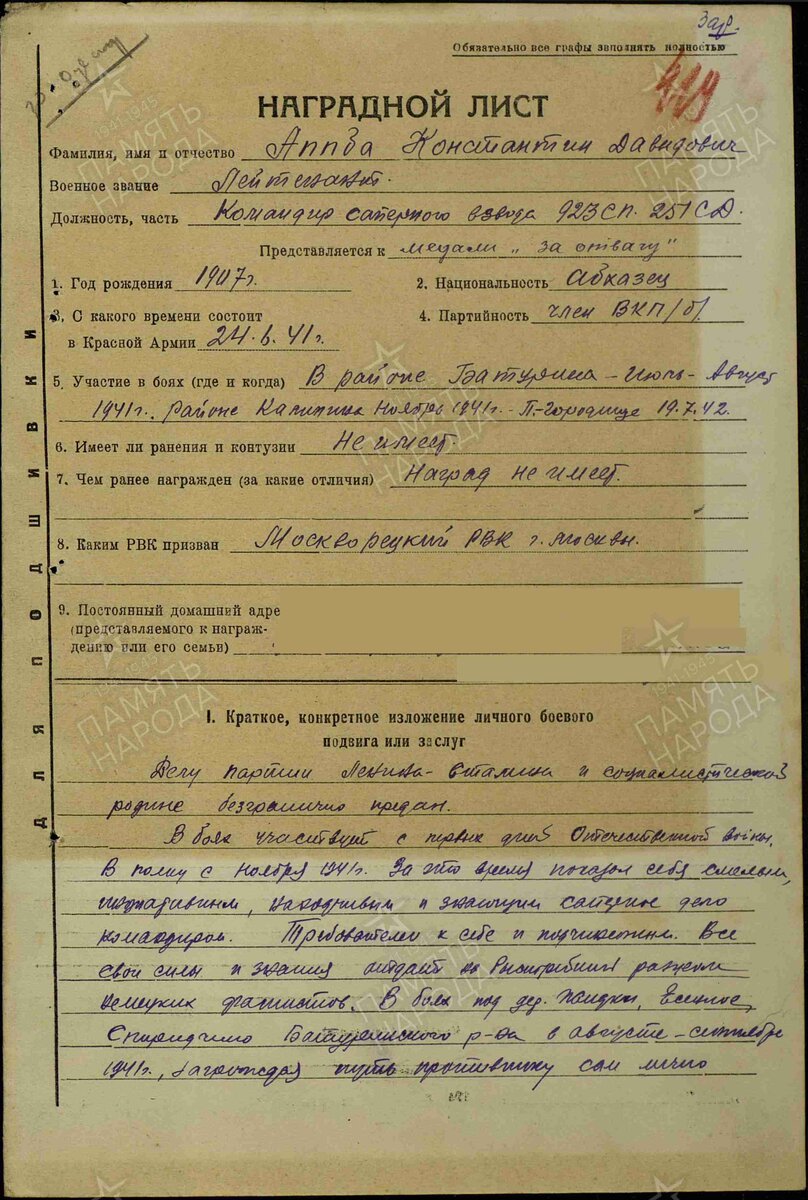 Зар.
Обязательно все графы заполнять полностью
419
НАГРАДНОЙ ЛИСТ
Фамилия, имя и отчество Аппба Константин Давидович
Военное звание Лейтенант.
Должность, часть Командир саперного взвода 923 сп. 251 СД.
Представляется к медали „за отвагу"
1. Год рождения 1907г. 2. Национальность Абхазец
3. С какого времени состоит 4. Партийность член ВКП/б/
в Красной Армии 24.6.41г.
5. Участие в боях (где и когда) В районе Батурина - июль - Август
1941г. Районе Калинина Ноябрь 1941г. - П-Городище 19.7.42.
6. Имеет ли ранения и контузии Не имеет.
7. Чем ранее награжден (за какие отличия) Наград не имеет.
8. Каким РВК призван Москворецкий РВК г. Москвы.
9. Постоянный домашний адре
(представляемого к награж-
дению или его семьи)
ДЛЯ ПОДШИВКИ
I. Краткое, конкретное изложение личного боевого
подвига или заслуг
Делу партии Ленина-Сталина и социалистической
родине безгранично предан.
В боях участвует с первых дней Отечественной войны.
В полку с Ноября 1941г. За это время показал себя смелым,
инициативным, находчивым и знающим саперное дело
командиром. Требователен к себе и подчиненным. Все
свои силы и знания отдает на разгром
немецких фашистов. В боях под дер. Жидки,
Спиридчино Батуринского р-на в августе-сентябре
1941г., заграждая путь противнику сам лично
ПАМЯТЬ НАРОДА
1941-1945